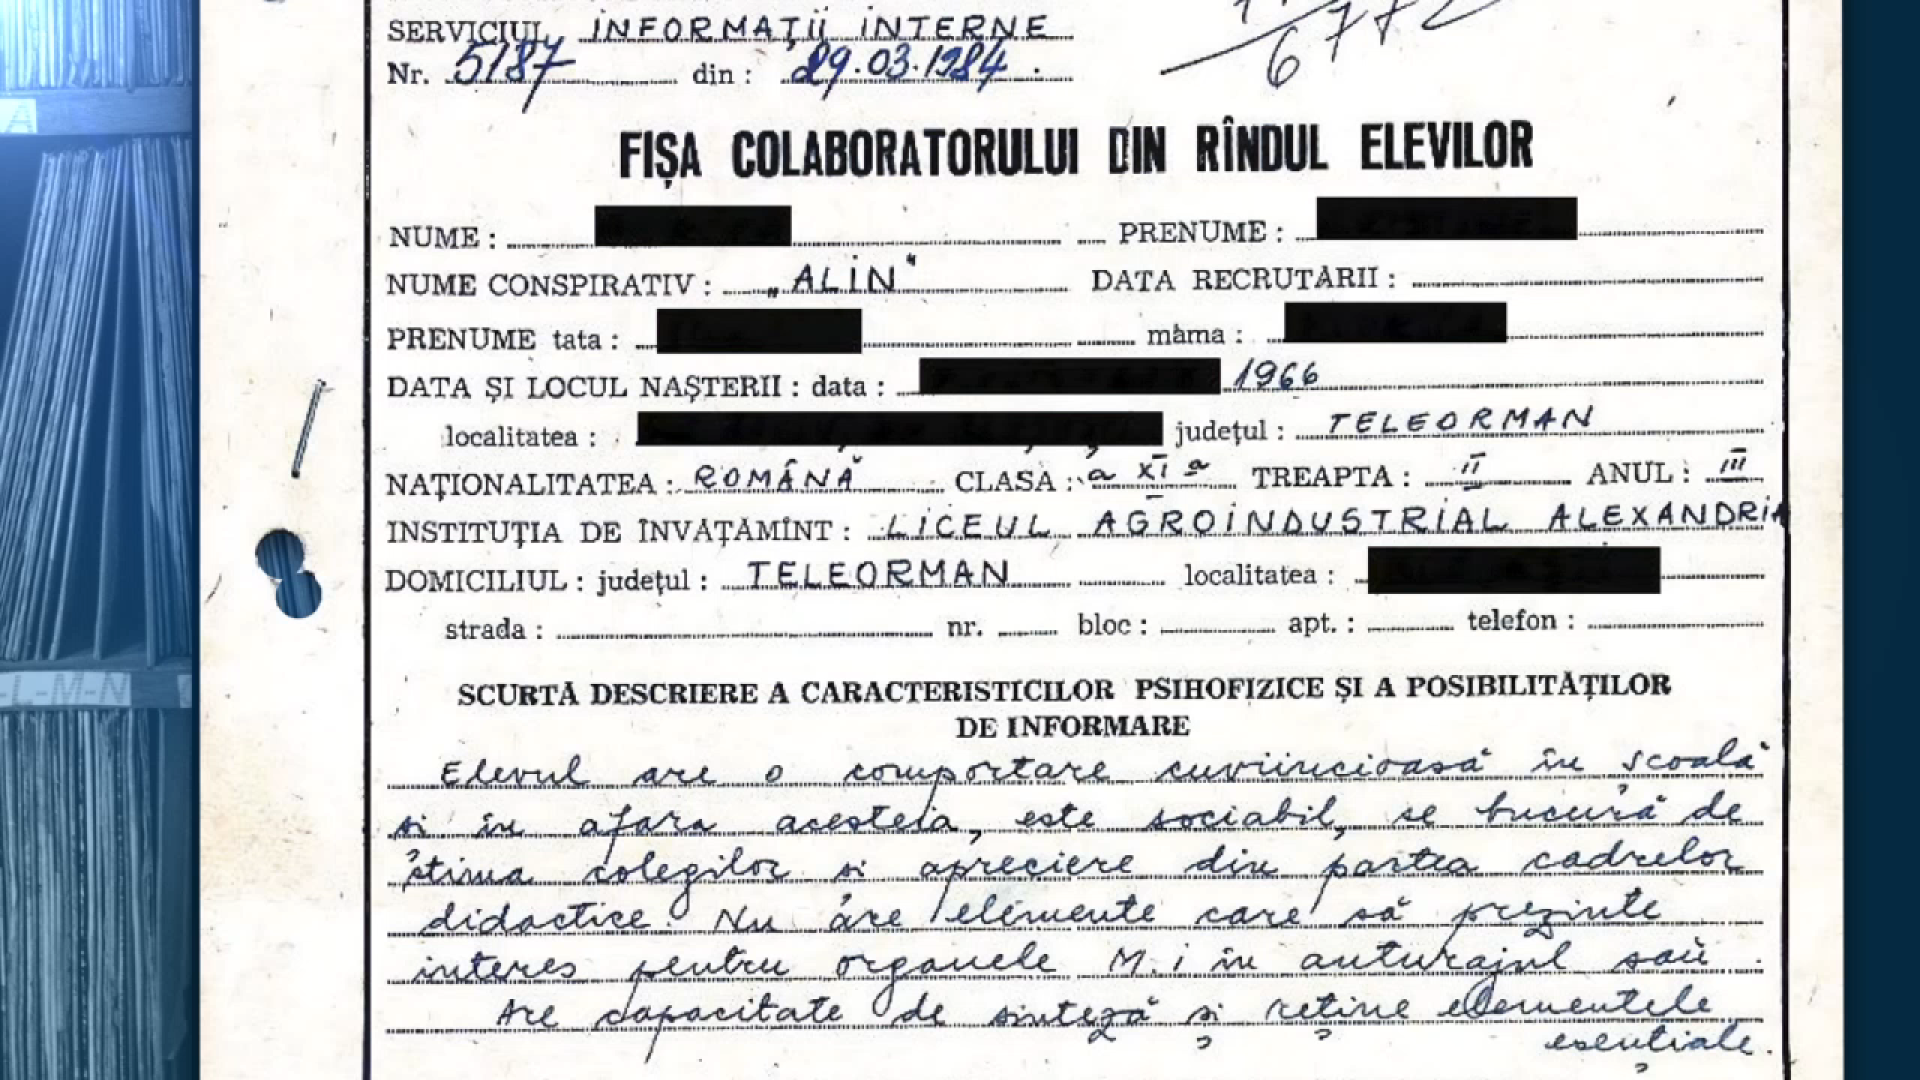 SERVICIUL INFORMAȚII INTERNE
Nr. 5187 din : 29.03.1984
FIȘA COLABORATORULUI DIN RÎNDUL ELEVILOR
NUME : PRENUME :
NUME CONSPIRATIV : „ALIN" DATA RECRUTĂRII :
PRENUME tata : mama :
DATA ȘI LOCUL NAȘTERII : data : 1966
localitatea : județul : TELEORMAN
NAȚIONALITATEA : ROMÂNĂ CLASA : a XI a TREAPTA : II ANUL : III
INSTITUȚIA DE ÎNVĂȚĂMÎNT : LICEUL AGROINDUSTRIAL ALEXANDRIA
DOMICILIUL : județul : TELEORMAN localitatea :
strada : nr. bloc : apt. : telefon :
SCURTĂ DESCRIERE A CARACTERISTICILOR PSIHOFIZICE ȘI A POSIBILITĂȚILOR
DE INFORMARE
Elevul are o comportare cuviincioasă în școală
si în afara acesteia, este sociabil, se bucură de
stima colegilor si apreciere din partea cadrelor
didactice. Nu are elemente care să prezinte
interes pentru organele M.i în anturajul său.
Are capacitate de sinteză și reține elementele
esențiale.
A
-L-M-N